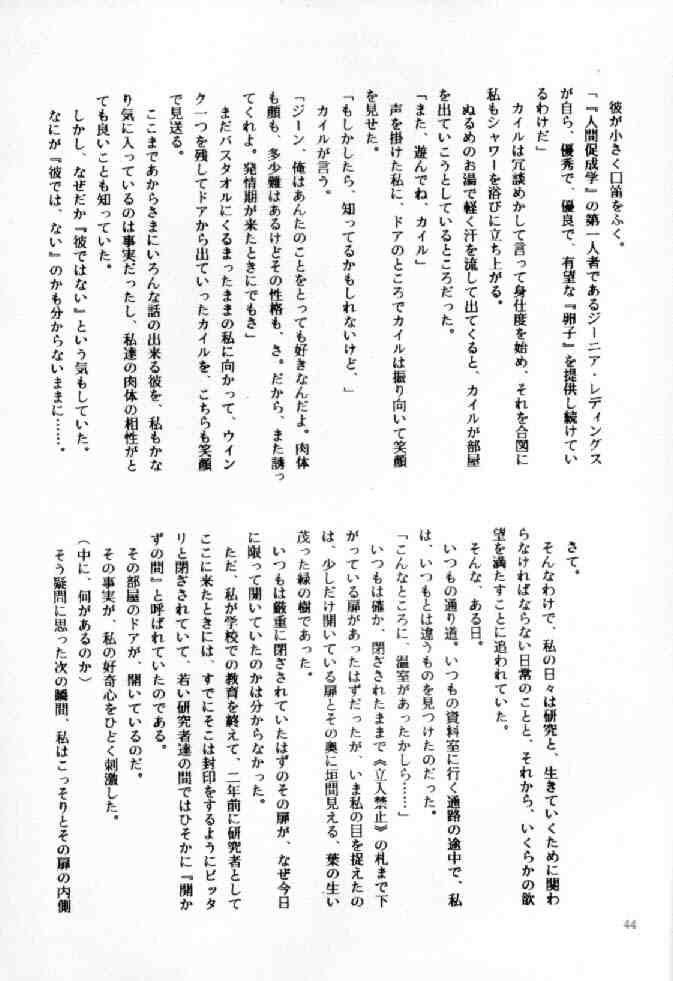 彼が小さく口笛をふく。
「『人間促成学』の第一人者であるジーニア・レディングス
が自ら、優秀で、優良で、有望な『卵子』を提供し続けてい
るわけだ」
カイルは冗談めかして言って身仕度を始め、それを合図に
私もシャワーを浴びに立ち上がる。
ぬるめのお湯で軽く汗を流して出てくると、カイルが部屋
を出ていこうとしているところだった。
「また、遊んでね、カイル」
声を掛けた私に、ドアのところでカイルは振り向いて笑顔
を見せた。
「もしかしたら、知ってるかもしれないけど、」
カイルが言う。
「ジーン、俺はあんたのことをとっても好きなんだよ。肉体
も顔も、多少難はあるけどその性格も、さ。だから、また誘っ
てくれよ。発情期が来たときにでもさ」
まだバスタオルにくるまったままの私に向かって、ウイン
ク一つを残してドアから出ていったカイルを、こちらも笑顔
で見送る。
ここまであからさまにいろんな話の出来る彼を、私もかな
り気に入っているのは事実だったし、私達の肉体の相性がと
ても良いことも知っていた。
しかし、なぜだか『彼ではない』という気もしていた。
なにが『彼では、ない』のかも分からないままに……。
さて。
そんなわけで、私の日々は研究と、生きていくために関わ
らなければならない日常のことと、それから、いくらかの欲
望を満たすことに追われていた。
そんな、ある日。
いつもの通り道。いつもの資料室に行く通路の途中で、私
は、いつもとは違うものを見つけたのだった。
「こんなところに、温室があったかしら……」
いつもは確か、閉ざされたままで《立入禁止》の札まで下
がっている扉があったはずだったが、いま私の目を捉えたの
は、少しだけ開いている扉とその奥に垣間見える、葉の生い
茂った緑の樹であった。
いつもは厳重に閉ざされていたはずのその扉が、なぜ今日
に限って開いていたのかは分からなかった。
ただ、私が学校での教育を終えて、二年前に研究者として
ここに来たときには、すでにそこは封印をするようにピッタ
リと閉ざされていて、若い研究者達の間ではひそかに『開か
ずの間』と呼ばれていたのである。
その部屋のドアが、開いているのだ。
その事実が、私の好奇心をひどく刺激した。
(中に、何があるのか)
そう疑問に思った次の瞬間、私はこっそりとその扉の内側
44